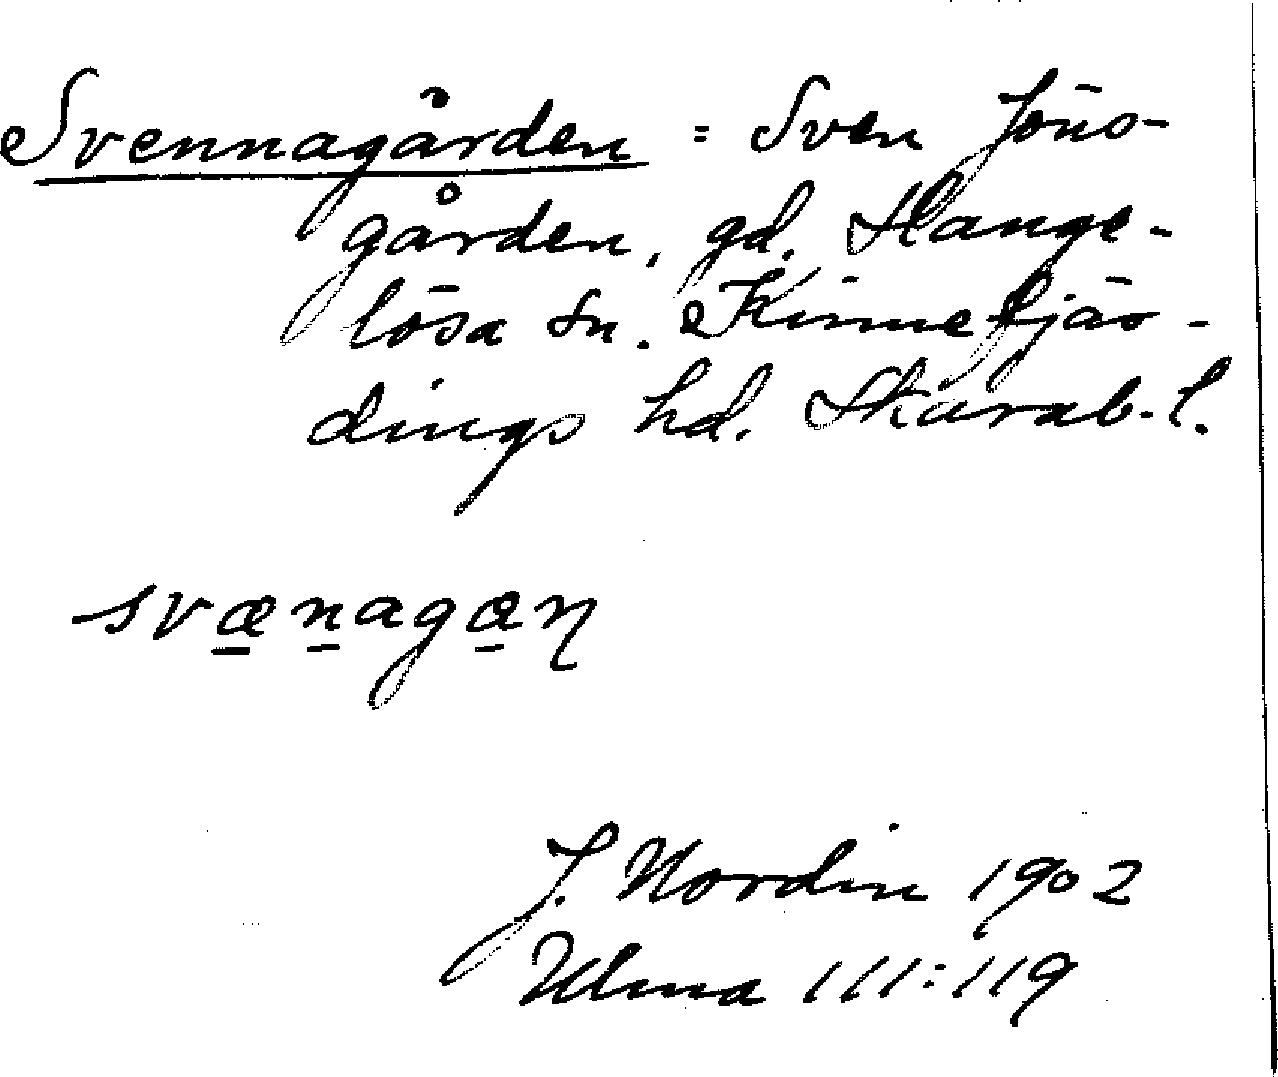 Svennagården = Sven Jöns-
gården, gd. Slange-
lösa sn. Kinnefjär-
dings hd. Skarab. l.
svænagan
J. Nordin 1902
Ulma 111:119